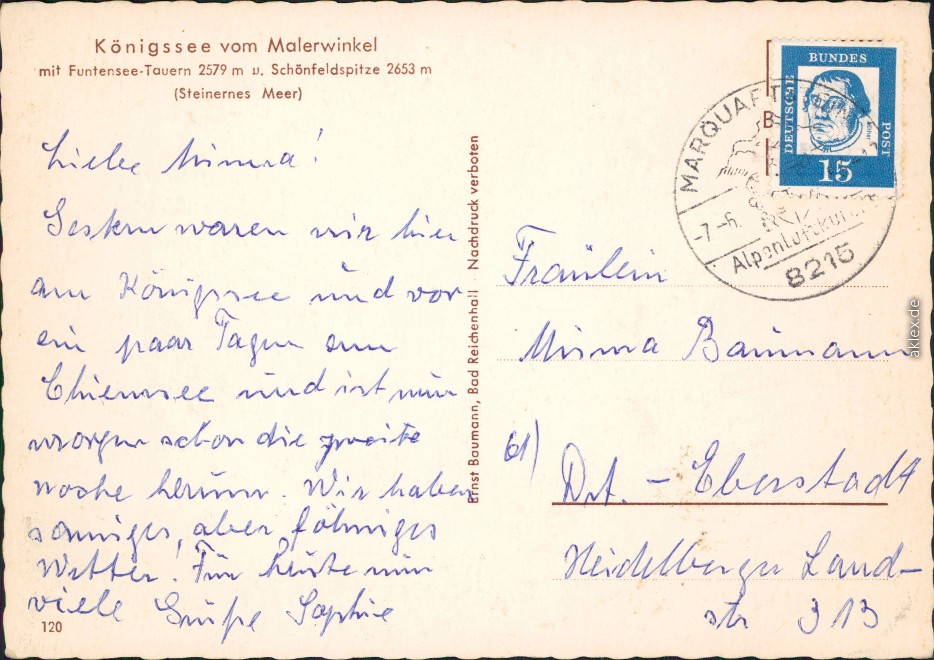 Königssee vom Malerwinkel
mit Funtensee-Tauern 2579 m u. Schönfeldspitze 2653 m
(Steinernes Meer)
Liebe Minna!
Gestern waren wir hier
am Königssee und vor
ein paar Tagen am
Chiemsee und ist nun
morgen schon die zweite
woche herum. Wir haben
sonniges, aber föhniges
Wetter. Für heute nun
viele Grüße Sophie
120
Ernst Baumann, Bad Reichenhall · Nachdruck verboten
DEUTSCHE BUNDES POST
15
MARQUA
-7.-6.
Alpenluftkur
8215
Fräulein
Minna Baumann
61)
Dst. - Eberstadt
Heidelberger Land-
str 313
aklex.de